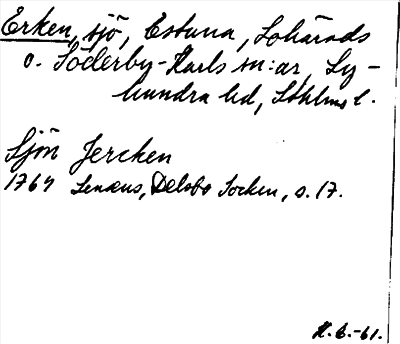 Erken, sjö, Estuna, Lohärads
o. Söderby-Karls sn:ar, Ly-
hundra hd, Sthlms l.
Sjön Jercken
1764 Lenæus, Delsbo Socken, s. 17.
H.C.-61.